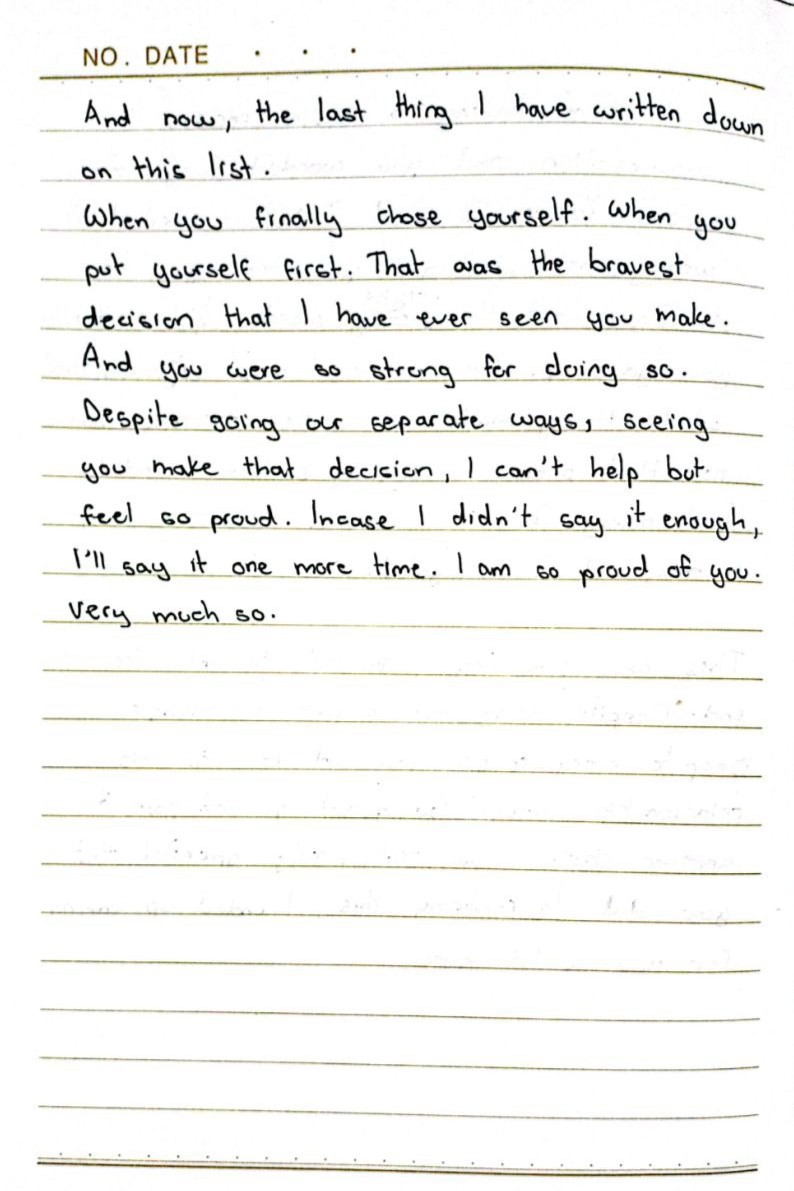 NO. DATE . . .
And now, the last thing I have written down
on this list.
When you finally chose yourself. When you
put yourself first. That was the bravest
decision that I have ever seen you make.
And you were so strong for doing so.
Despite going our separate ways, seeing
you make that decision, I can't help but
feel so proud. Incase I didn't say it enough,
I'll say it one more time. I am so proud of you.
Very much so.